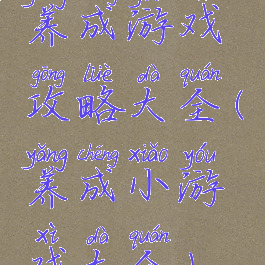 养成游戏
gōng lüè dà quán
攻略大全(
yǎng chéng xiǎo yóu
养成小游
xì dà quán
戏大全)